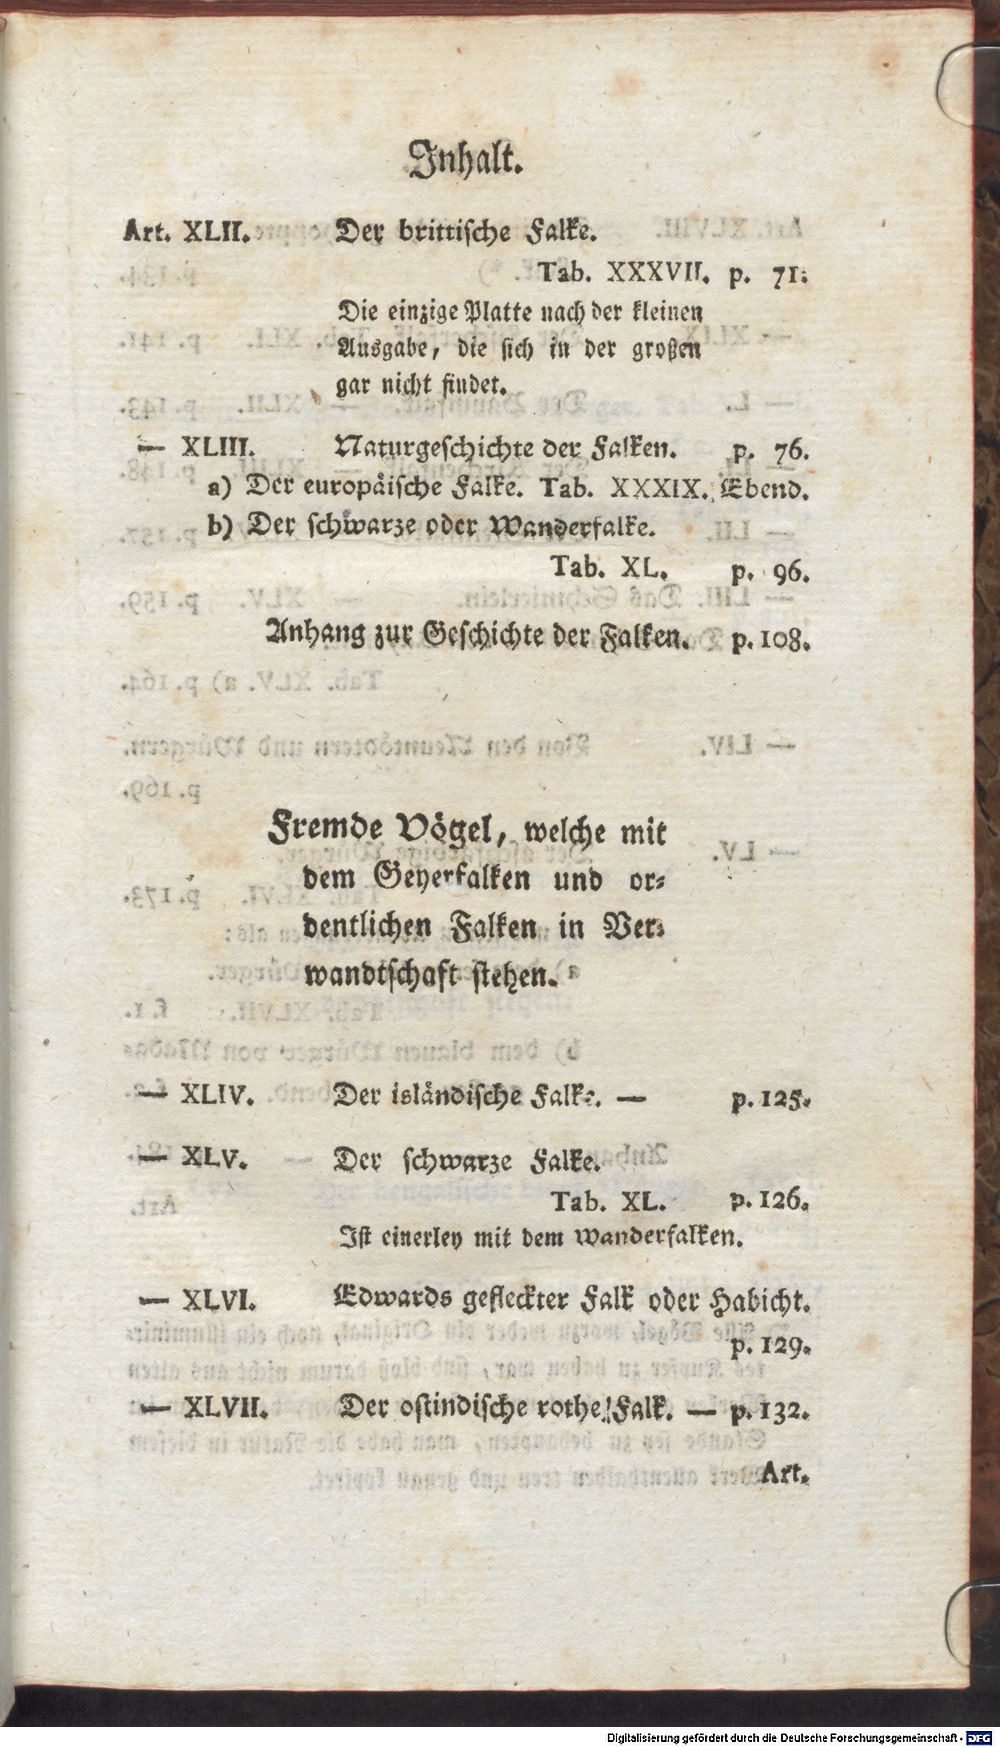 Inhalt.
Art. XLII. Der brittische Falke.
Tab. XXXVII. p. 71.
Die einzige Platte nach der kleinen
Ausgabe, die sich in der großen
gar nicht findet.
— XLIII. Naturgeschichte der Falken. p. 76.
a) Der europäische Falke. Tab. XXXIX. Ebend.
b) Der schwarze oder Wanderfalke.
Tab. XL. p. 96.
Anhang zur Geschichte der Falken. p. 108.
Fremde Vögel, welche mit
dem Geyerfalken und or-
dentlichen Falken in Ver-
wandtschaft stehen.
— XLIV. Der isländische Falke. — p. 125.
— XLV. — Der schwarze Falke.
Tab. XL. p. 126.
Ist einerley mit dem Wanderfalken.
— XLVI. Edwards gefleckter Falk oder Habicht.
p. 129.
— XLVII. Der ostindische rothe Falk. — p. 132.
Art.
Digitalisierung gefördert durch die Deutsche Forschungsgemeinschaft - DFG